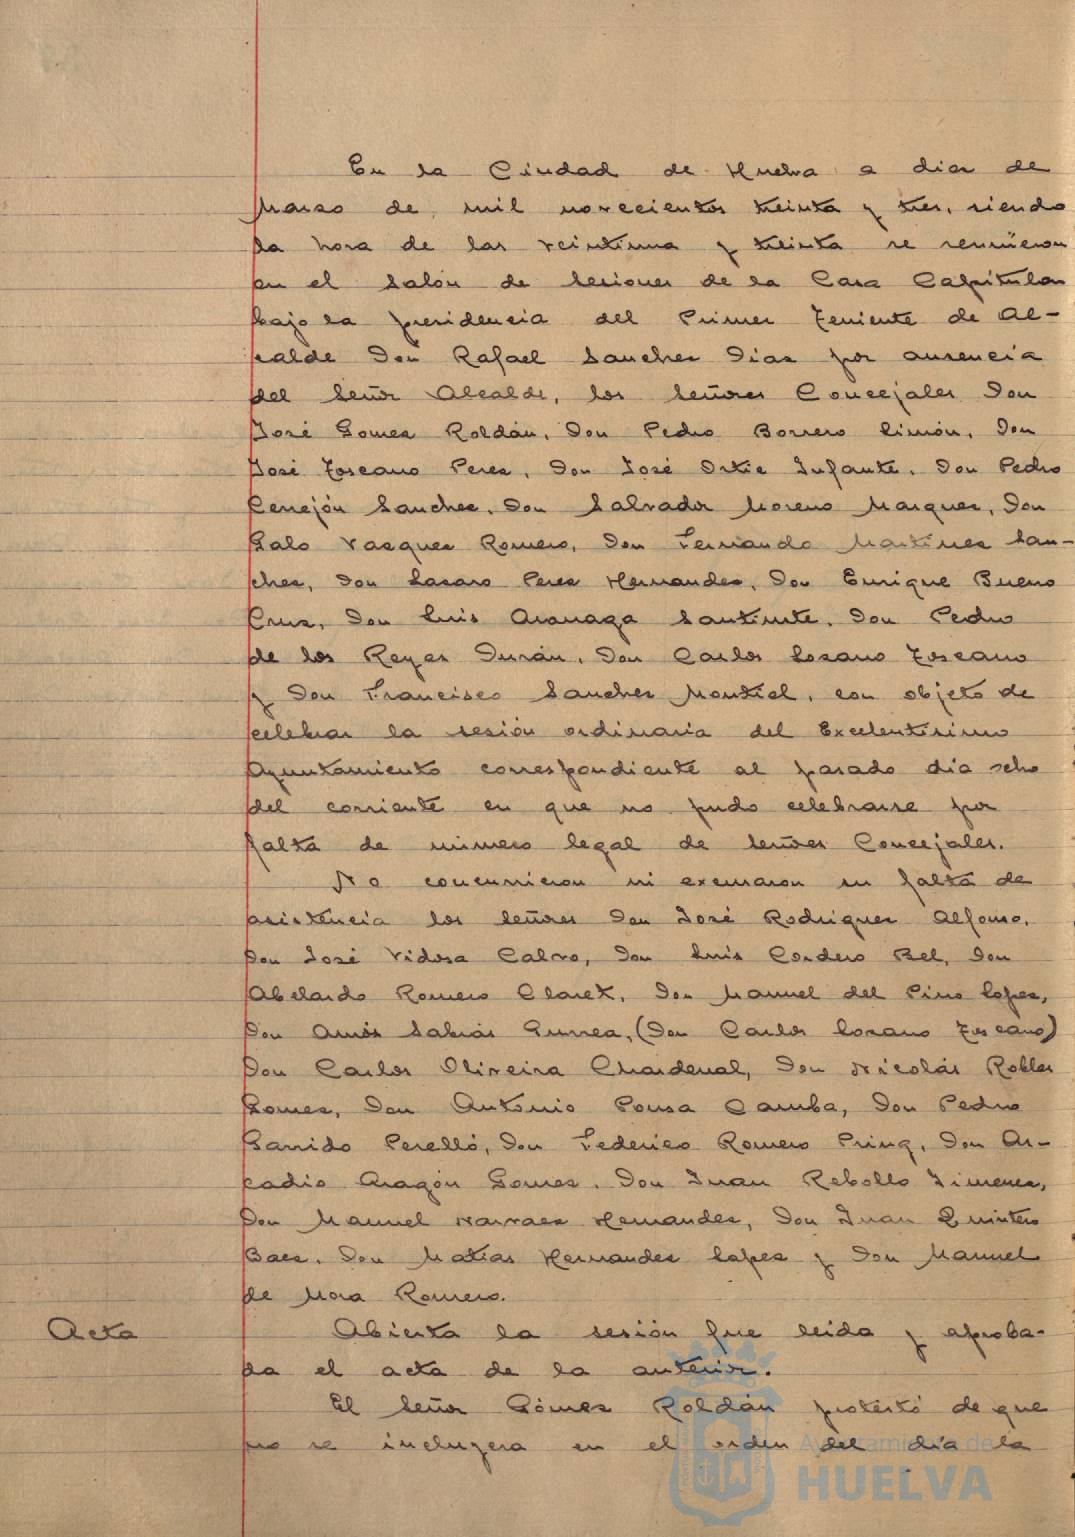 En la Ciudad de Huelva a diez de
Marzo de mil novecientos treinta y tres, siendo
la hora de las veintiuna y treinta se reunieron
en el Salón de Sesiones de la Casa Capitular
bajo la presidencia del Primer Teniente de Al-
calde Don Rafael Sanchez Diaz por ausencia
del Señor Alcalde, los Señores Concejales Don
José Gomez Roldán, Don Pedro Borrero Limón, Don
José Toscano Perez, Don José Ortiz Infante, Don Pedro
Cerrejón Sanchez, Don Salvador Moreno Marquez, Don
Galo Vazquez Romero, Don Fernando Martinez San-
chez, Don Lazaro Perez Hernandez, Don Enrique Bueno
Cruz, Don Luis Aranaga Santirute, Don Pedro
de los Reyes Durán, Don Carlos Lozano Toscano
y Don Francisco Sanchez Montiel, con objeto de
celebrar la sesión ordinaria del Excelentísimo
Ayuntamiento correspondiente al pasado día ocho
del corriente en que no pudo celebrarse por
falta de número legal de Señores Concejales.
No concurrieron ni excusaron su falta de
asistencia los Señores Don José Rodriguez Alfonso,
Don José Vidosa Calvo, Don Luis Cordero Bel, Don
Abelardo Romero Claret, Don Manuel del Pino Lopez,
Don Amós Sabrás Gurrea, (Don Carlos Lozano Toscano)
Don Carlos Oliveira Chardenal, Don Nicolás Robles
Gomez, Don Antonio Pousa Camba, Don Pedro
Garrido Perelló, Don Federico Romero Pring, Don Ar-
cadio Aragón Gomez, Don Juan Rebollo Jimenez,
Don Manuel Narvaez Hernandez, Don Juan Quintero
Baez, Don Matias Hernandez Lopez y Don Manuel
de Mora Romero.
Acta Abierta la sesión fue leida y aproba-
da el acta de la anterior.
El Señor Gómez Roldán protestó de que
no se incluyera en el orden del día la
Ayuntamiento de
HUELVA